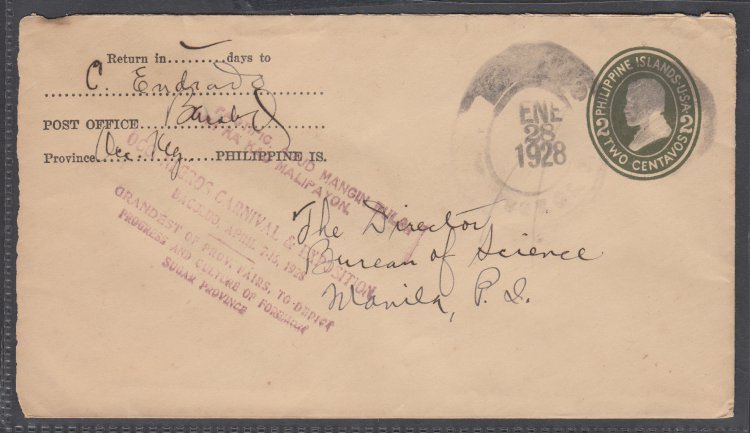 Return in.........days to
C. Endrada
POST OFFICE
Province Occ. Neg. PHILIPPINE IS.
MANGIN
KAG MALIPAYON.
OCC. NEGROS CARNIVAL & EXPOSITION
BACOLOD, APRIL 7-15, 1928
GRANDEST OF PROV. FAIRS, TO DEPICT
PROGRESS AND CULTURE OF FOREMOST
SUGAR PROVINCE
ENE
28
1928
PHILIPPINE ISLANDS·U·S·A·
2 2
TWO CENTAVOS
The Director
Bureau of Science
Manila, P. I.